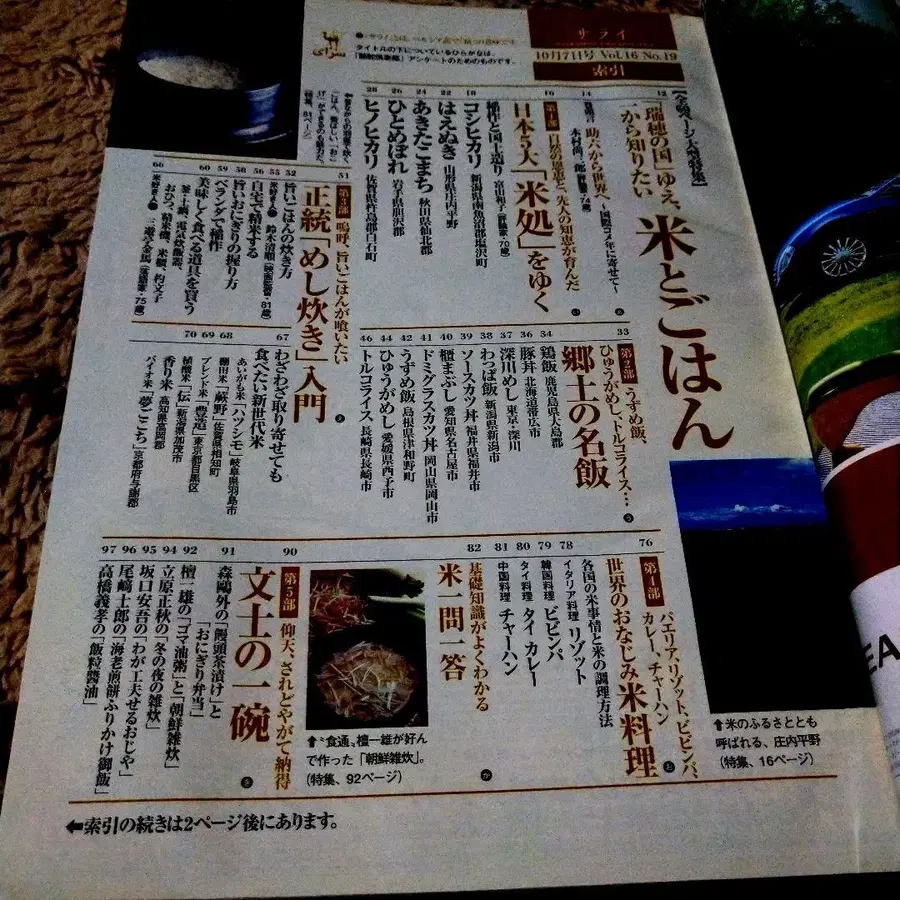 サライ
10月7日号 Vol.16 No.19
索引
タイトルの下についているひらがなは、
アンケートのためのものです。
【全55ページ大特集】
12 「瑞穂の国」ゆえ、
一から知りたい
米とごはん
14 助六から世界へ ～国際コメ年に寄せて～
木村尚三郎
16 第1部 自然の恩恵と、先人の知恵が育んだ
日本5大「米処」をゆく
稲作と国土造り 富山和子
18 コシヒカリ 新潟県南魚沼郡塩沢町
22 はえぬき 山形県庄内平野
24 あきたこまち 秋田県仙北郡
26 ひとめぼれ 岩手県胆沢郡
28 ヒノヒカリ 佐賀県杵島郡白石町
33 第2部 うずめ飯、
ひゅうがめし、トルコライス…
郷土の名飯
34 鶏飯 鹿児島県大島郡
36 豚丼 北海道帯広市
37 深川めし 東京・深川
38 わっぱ飯 新潟県新潟市
39 ソースカツ丼 福井県福井市
40 櫃まぶし 愛知県名古屋市
41 ドミグラスカツ丼 岡山県岡山市
42 うずめ飯 島根県津和野町
44 ひゅうがめし 愛媛県西予市
46 トルコライス 長崎県長崎市
51 第3部 嗚呼、旨いごはんが喰いたい
正統「めし炊き」入門
52 旨いごはんの炊き方
55 米好き人 鈴木清順(映画監督・81歳)
56 自宅で精米する
58 旨いおにぎりの握り方
59 ベランダで稲作
60 美味しく食べる道具を買う
釜、土鍋、電気炊飯器、
おひつ、精米機、米櫃、杓文字
66 米好き人 三遊亭金馬(落語家・75歳)
67 わざわざ取り寄せても
食べたい新世代米
あいがも米「ハツシモ」岐阜県羽島市
68 棚田米「蕨野」佐賀県相知町
69 ブレンド米「豊造」東京都目黒区
植酸米「伝」新潟県加茂市
70 香り米 高知県高岡郡
バイオ米「夢ごこち」京都府与謝郡
76 第4部 パエリア、リゾット、ビビンバ、
カレー、チャーハン
世界のおなじみ米料理
各国の米事情と米の調理方法
78 イタリア料理 リゾット
79 韓国料理 ビビンバ
80 タイ料理 タイ・カレー
81 中国料理 チャーハン
82 基礎知識がよくわかる
米一問一答
90 第5部 仰天、されどやがて納得
文士の一碗
91 森鷗外の「饅頭茶漬け」と
「おにぎり弁当」
92 檀一雄の「ゴマ油粥」と「朝鮮雑炊」
94 立原正秋の「冬の夜の雑炊」
95 坂口安吾の「わが工夫せるおじや」
96 尾﨑士郎の「海老煎餅ふりかけ御飯」
97 高橋義孝の「飯粒醬油」
⬆“食通”檀一雄が好ん
で作った「朝鮮雑炊」。
(特集、92ページ)
⬆米のふるさととも
呼ばれる、庄内平野
(特集、16ページ)
⬅索引の続きは2ページ後にあります。